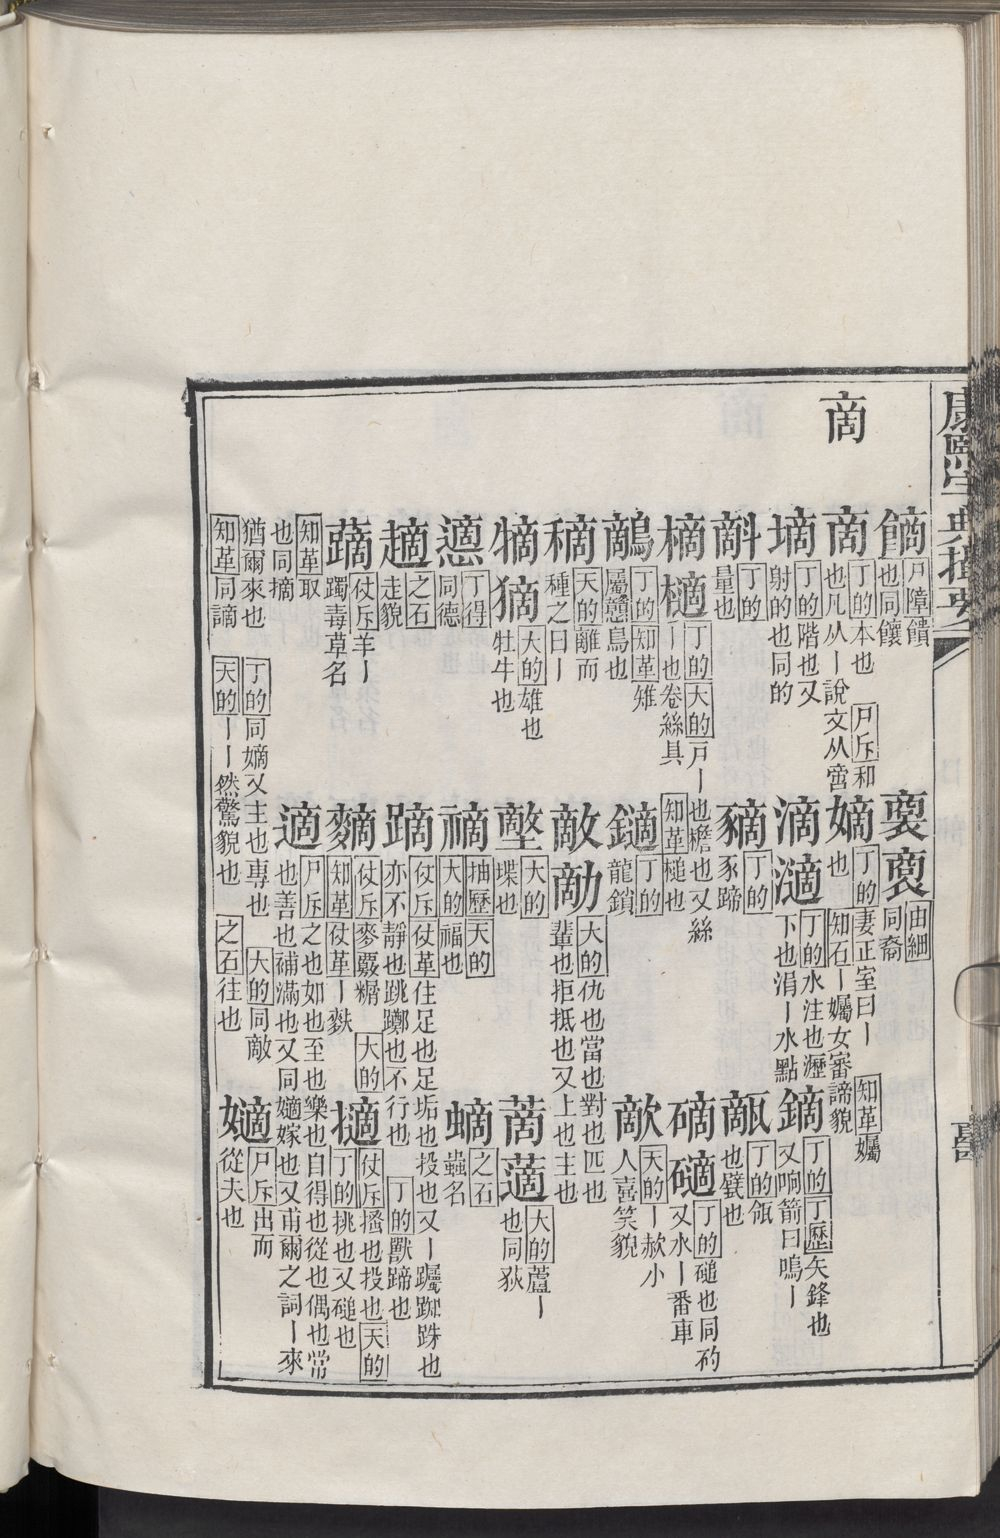 康熙字典撮要
啇
餙尸障饋也同饟
裛裒由細同裔
啇丁的本也凡从丨說文从啻 尸斥和也
嫡丁的妻正室曰丨 知石丨孎女審諦貌 知革孎
墑丁的階也又射的也同的
滴㵁丁的水注也瀝下也涓丨水點
鏑丁的丁歷矢鋒也又响箭曰鳴丨
㪷丁的量也
豴丁的豕蹄
甋丁的瓴也甓也
樀擿丁的大的戸丨也檐也又絲丨也卷絲具 知革槌也
碲磩丁的磓也同礿又水丨番車
鸐丁的知革雉屬戇鳥也
鏑丁的龍鎖
歒天的丨歘小人喜笑貌
䅵天的離而種之曰丨
敵㪣大的仇也當也對也匹也輩也拒抵也又上也主也
犆㹍大的雄也牡牛也
墼大的堞也
蔐藡大的蘆丨也同荻
憄丁得同德
禘抽歷天的大的福也
螪之石蟲名
䞶之石走貌
蹢仗斥仗革住足也足垢也投也又丨躅踟跦也亦不靜也跳躑也不行也 丁的獸蹄也
藡仗斥羊丨躅毒草名
䴞仗斥麥覈糏知革仗革丨麩 大的
擿仗斥搔也投也天的丁的挑也又磓也
知革取也同摘
適尸斥之也如也至也樂也自得也從也偶也常也善也補滿也又同嫡嫁也又甫爾之詞丨來猶爾來也
丁的同嫡又主也專也 大的同敵
知革同謫 天的丨丨然驚貌也 之石往也
嬂尸斥出而從夫也